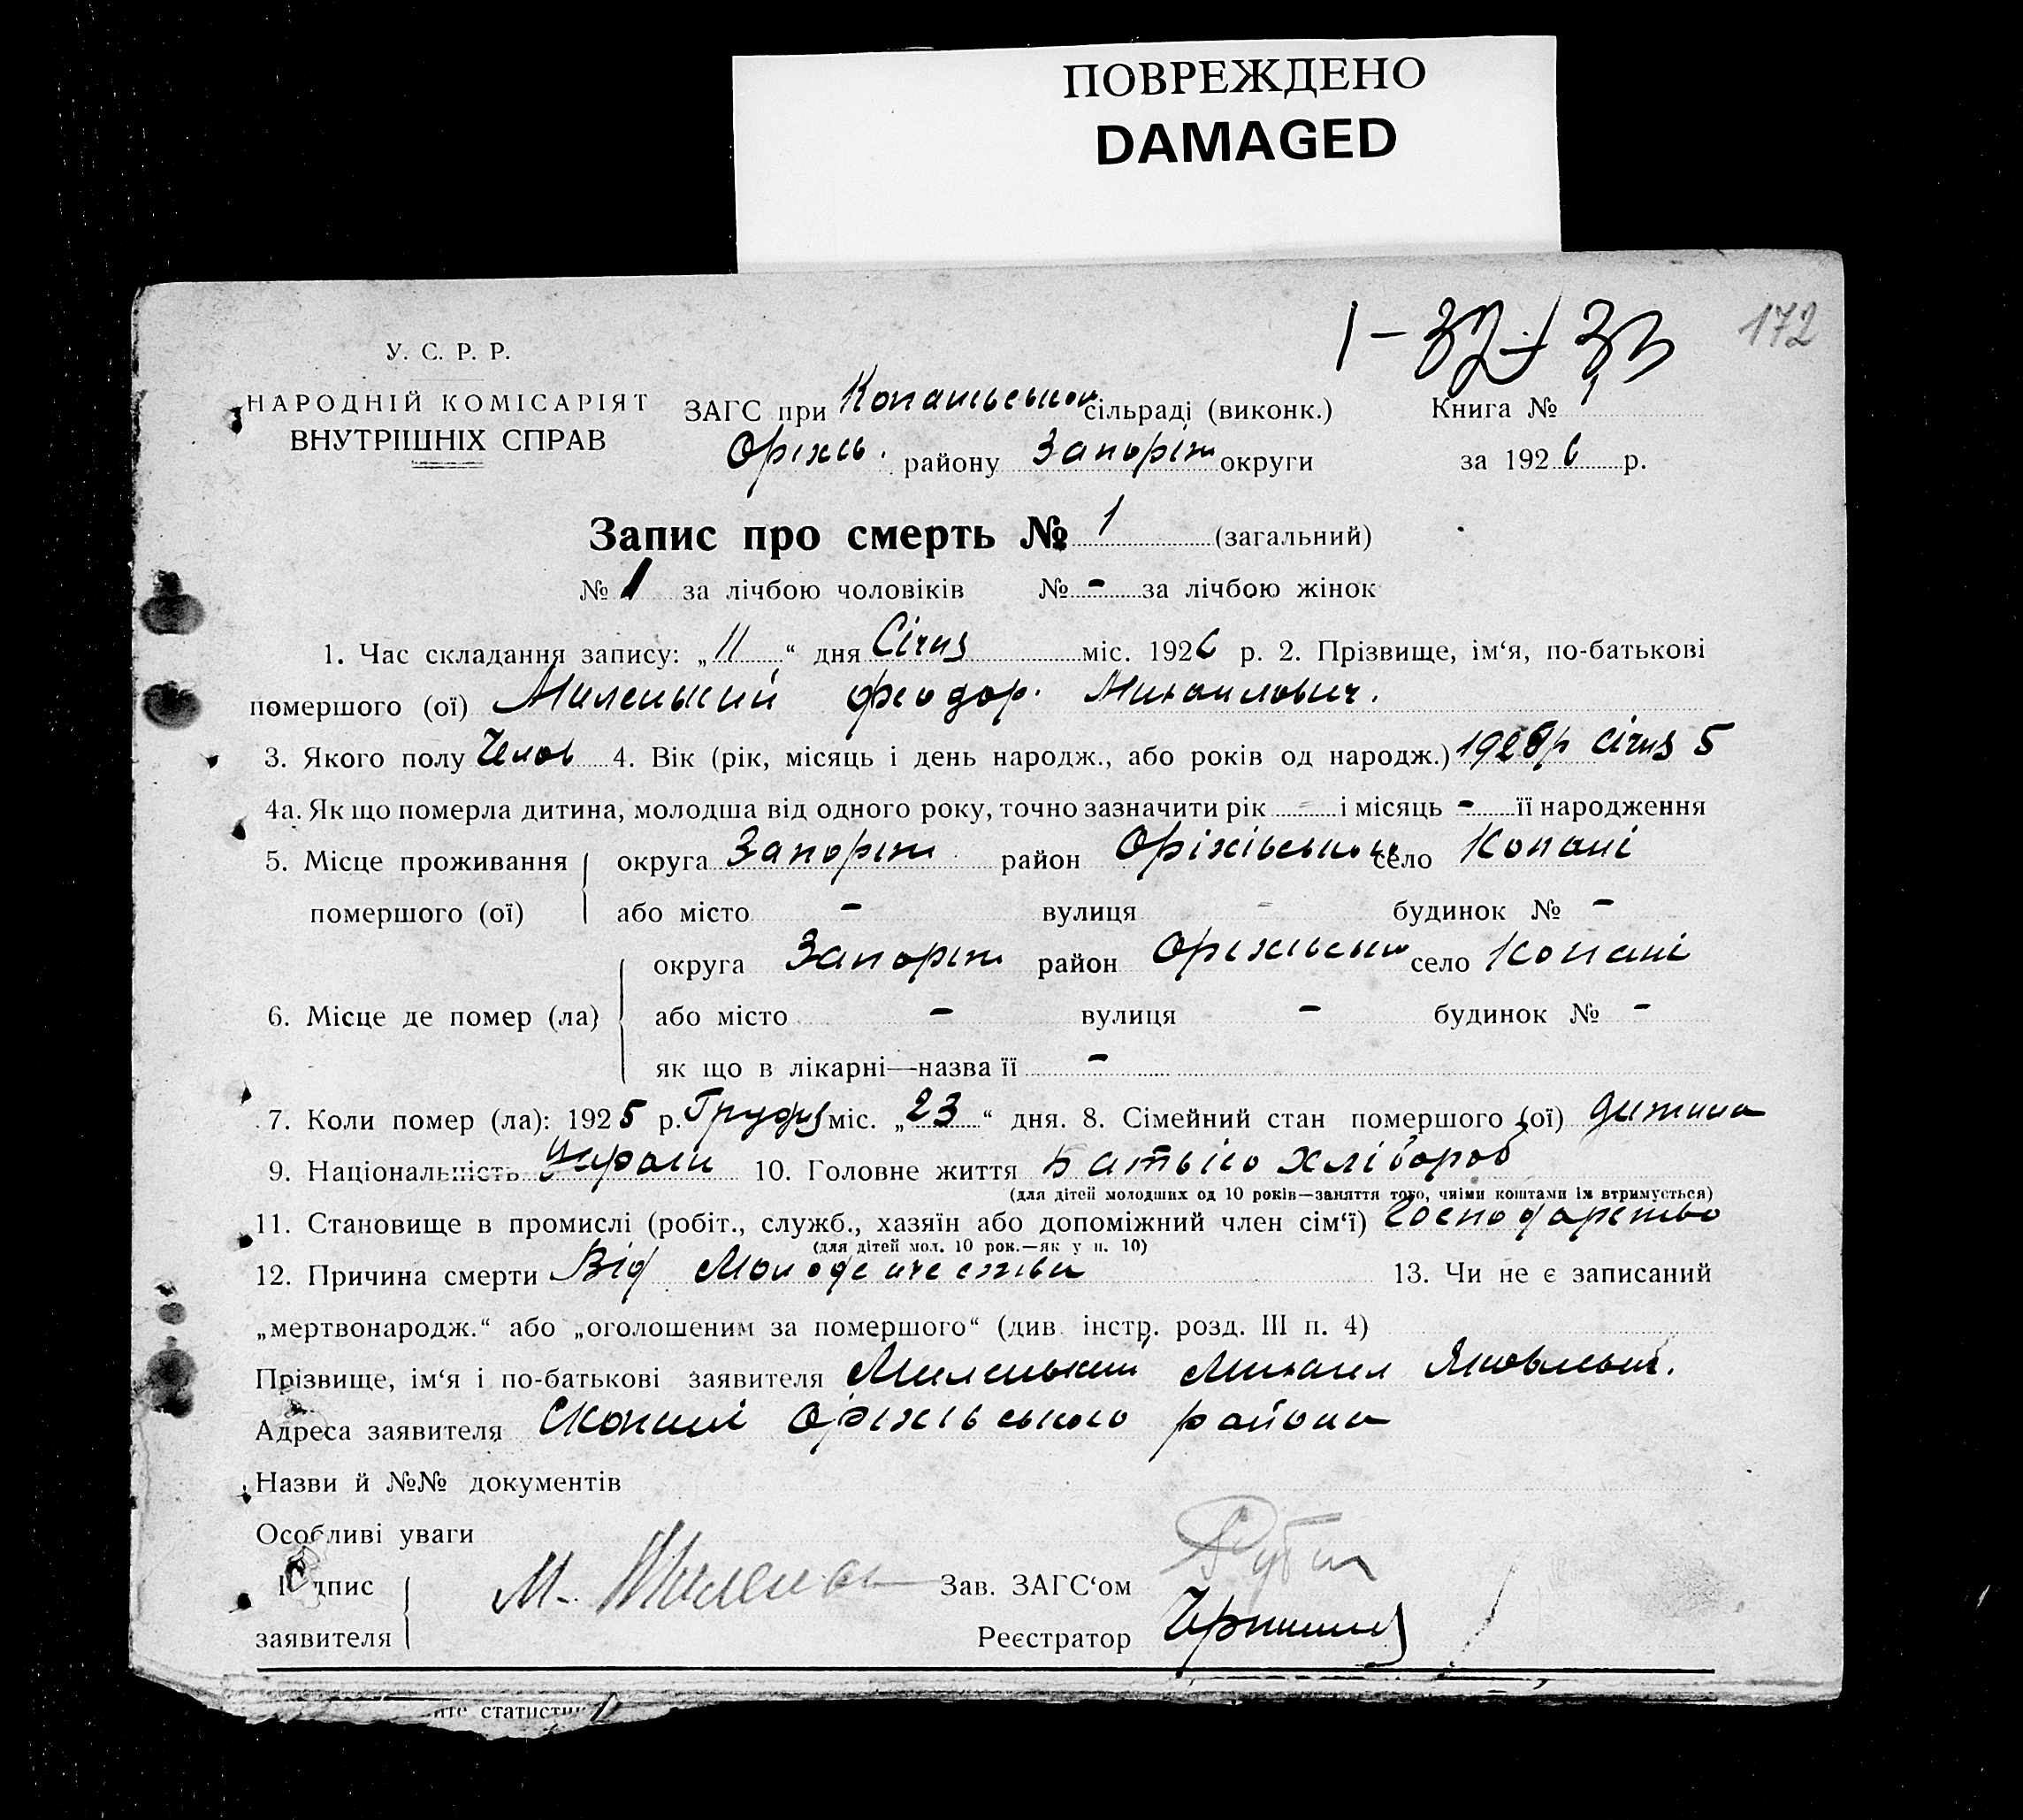 ПОВРЕЖДЕНО
DAMAGED
172
У. С. Р. Р.
НАРОДНІЙ КОМІСАРІЯТ
ВНУТРІШНІХ СПРАВ
ЗАГС при сільраді (виконк.) Книга №
Оріхів. району Запоріж округи за 1926 р.
Запис про смерть № 1 (загальний)
№ 1 за лічбою чоловіків № - за лічбою жінок
1. Час складання запису: „11“ дня Січня міс. 1926 р. 2. Прізвище, ім‘я, по-батькові
помершого (ої) Миленький Феодор. Михаилович.
3. Якого полу Челов 4. Вік (рік, місяць і день народж., або років од народж.) Січня 5
4а. Як що померла дитина, молодша від одного року, точно зазначити рік - і місяць - її народження
5. Місце проживання округа Запоріж район Оріхівського село Копані
помершого (ої) або місто - вулиця - будинок № -
округа Запоріж район Оріхівськ село Копані
6. Місце де помер (ла) або місто - вулиця - будинок № -
як що в лікарні—назва її -
7. Коли помер (ла): 1925 р. Грудня міс. „23“ дня. 8. Сімейний стан помершого (ої) дитина
9. Національність 10. Головне життя Батько хлібороб
(для дітей молодших од 10 років—заняття того, чиїми коштами їх втримується)
11. Становище в промислі (робіт., служб., хазяїн або допоміжний член сім‘ї) Господарство
(для дітей мол. 10 рок.—як у п. 10)
12. Причина смерти Від 13. Чи не є записаний
„мертвонародж.“ або „оголошеним за помершого“ (див. інстр. розд. III п. 4)
Прізвище, ім‘я і по-батькові заявителя Миленький Михаил Яковлевич.
Адреса заявителя С Копані Оріхівського района
Назви й №№ документів
Особливі уваги
Підпис М. Миленьк Зав. ЗАГС‘ом
заявителя Реєстратор
статистич